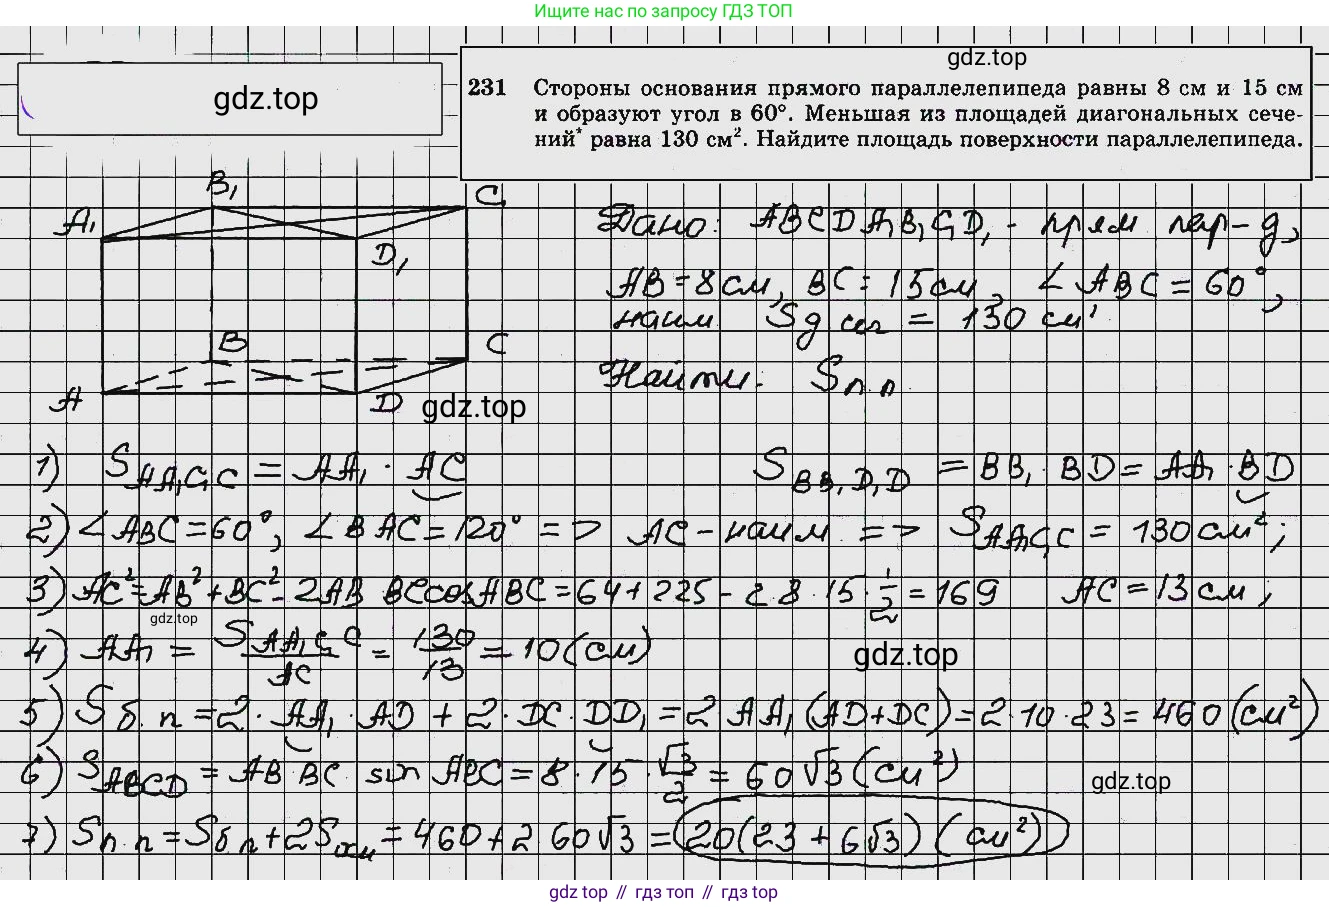 Ищите нас по запросу ГДЗ ТОП
gdz.top
gdz.top
231 Стороны основания прямого параллелепипеда равны 8 см и 15 см
и образуют угол в 60°. Меньшая из площадей диагональных сече-
ний* равна 130 см². Найдите площадь поверхности параллелепипеда.
B₁ C₁
A₁
D₁
B C
A D
gdz.top
Дано: ABCDA₁B₁C₁D₁ - прям пар-д,
AB = 8 см, BC = 15 см, ∠ABC = 60°,
наим Sд сеч = 130 см²
Найти: Sп.п
1) S_AA₁C₁C = AA₁ · AC S_BB₁D₁D = BB₁ · BD = AA₁ · BD
2) ∠ABC = 60°, ∠BAC = 120° => AC - наим => S_AA₁C₁C = 130 см²;
3) AC² = AB² + BC² - 2AB BC cos ABC = 64 + 225 - 2·8·15·1/2 = 169 AC = 13 см;
gdz.top
4) AA₁ = S_AA₁C₁C/AC = 130/13 = 10 (см)
gdz.top
5) Sб.п = 2·AA₁·AD + 2·DC·DD₁ = 2AA₁(AD+DC) = 2·10·23 = 460 (см²)
6) S_ABCD = AB·BC·sin ABC = 8·15·√3/2 = 60√3 (см²)
gdz.top
7) Sп.п = Sб.п + 2Sосн = 460 + 2·60√3 = 20(23 + 6√3) (см²)
gdz top // гдз топ // gdz top